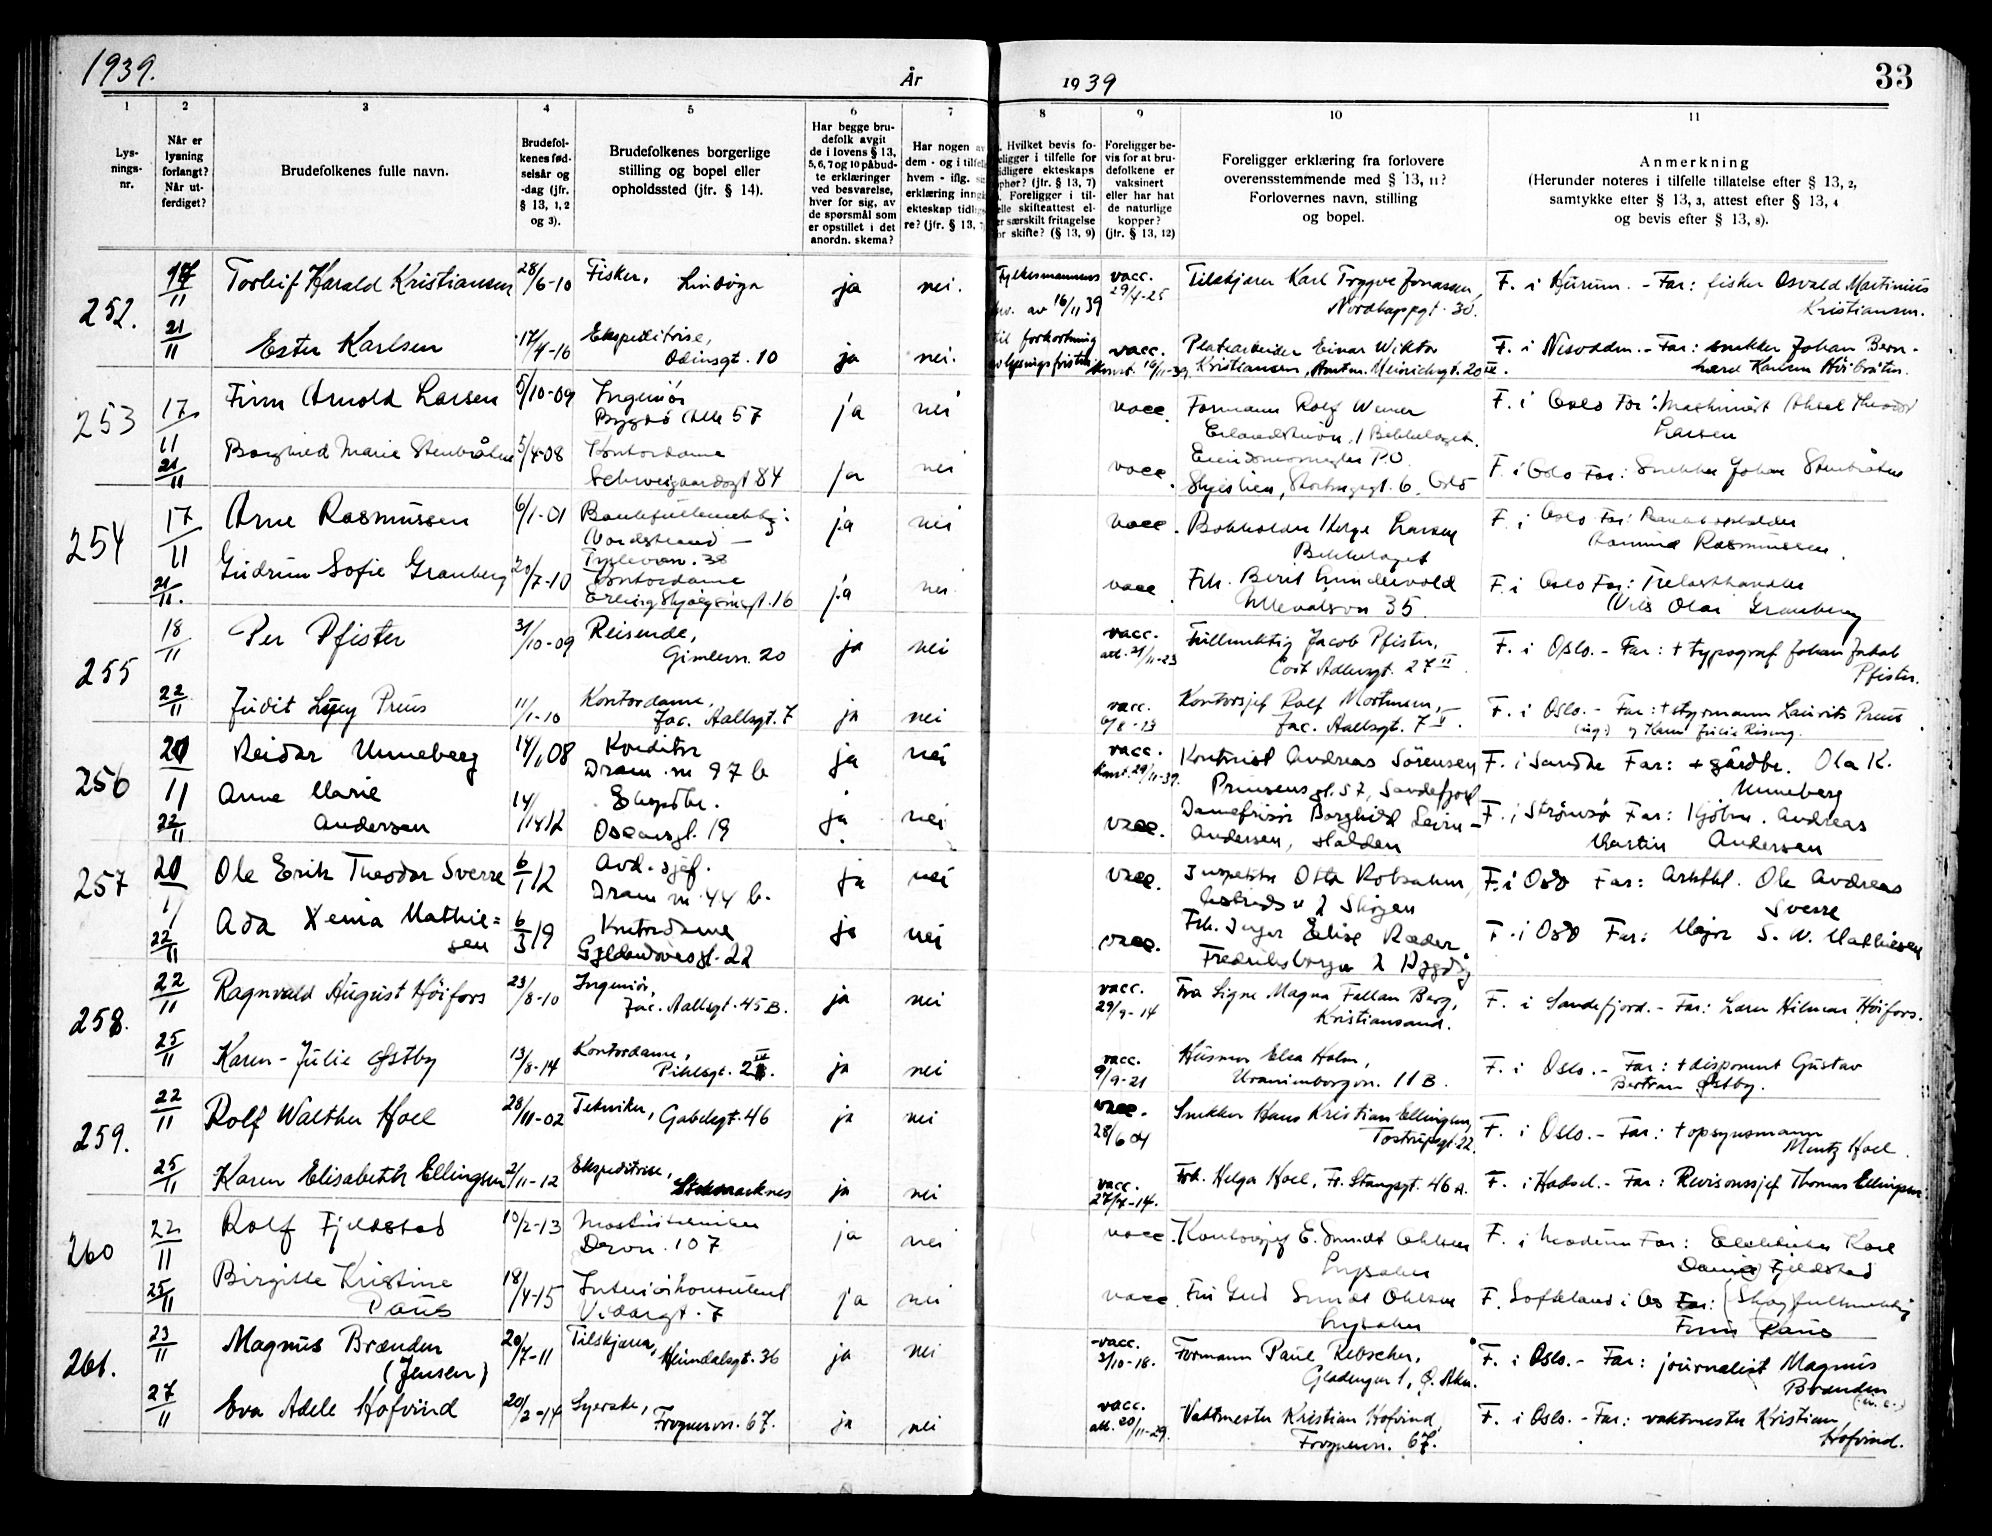 1939.
År
1939
33
1
2
3
4
5
6
7
8
9
10
11
Lys-
nings-
nr.
Når er
lysning
forlangt?
Når ut-
ferdiget?
Brudefolkenes fulle navn.
Brudefol-
kenes fød-
selsår og
-dag (jfr.
§ 13, 1, 2
og 3).
Brudefolkenes borgerlige
stilling og bopel eller
opholdssted (jfr. § 14).
Har begge bru-
defolk avgit
de i lovens § 13,
5, 6, 7 og 10 påbud-
te erklæringer
ved besvarelse,
hver for sig, av
de spørsmål som
er opstillet i det
anordn. skema?
Har nogen av
dem - og i tilfelle
hvem - iflg.
erklæring inngå
ekteskap tidlig
re? (jfr. § 13,
Hvilket bevis fo-
religger i tilfelle for
tidligere ekteskaps
ophør? (jfr. § 13, 7)
Foreligger i til-
felle skifteattest el-
ler særskilt fritagelse
for skifte? (§ 13, 9)
Foreligger be-
vis for at bru-
defolkene er
vaksinert
eller har hat
de naturlige
kopper?
(jfr. § 13, 12)
Foreligger erklæring fra forlovere
overensstemmende med § 13, 11?
Forlovernes navn, stilling
og bopel.
Anmerkning
(Herunder noteres i tilfelle tillatelse efter § 13, 2,
samtykke efter § 13, 3, attest efter § 13, 4
og bevis efter § 13, 8).
252.
17/11
Torleif Harald Kristiansen
28/6-10
Fisker, Lindøya
ja
nei.
Fylkesmannens
av 16/11 39
vacc.
29/4-25
Tilskjærer Karl Trygve Jonassen,
Nordkappgt. 30.
F. i Hurum. - Far: fisker Osvald Martinius
Kristiansen.
21/11
Ester Karlsen
17/4-16
Ekspeditrise,
Odinsgt. 10
ja
nei.
til forkortning
av lysningsfristen
vacc.
Platearbeider Einar Wiktor
Kristiansen, Heinrichsgt. 20
F. i Nesodden. - Far: snekker Johan Bern-
hard Karlsen Høibråten.
253
17/11
Finn Arnold Larsen
5/10-09
Ingeniør
Bygdø Alle 57
ja
nei
vacc.
Formann Rolf
Bekkelaget.
F. i Oslo Far: Maskinist Aksel Theodor
Larsen
21/11
Borghild Marie Stenbråten
5/4-08
Kontordame
Schweigaardsgt 84
ja
nei
vacc.
Eiendomsmegler P.O.
Stortingsgt. 6. Oslo
F. i Oslo Far: Snekker Johan Stenbråten
254
17/11
Arne Rasmussen
6/1-01
Bankfullmektig
Nordstrand
ja
nei
vacc.
Bokholder Helge Larsen
Bekkelaget
F. i Oslo Far:
Rasmussen.
21/11.
Gudrun Sofie Granberg
20/7-10
Kontordame
Erling Skjalgsønsgt. 16
ja
nei
vacc.
Frk. Berit Lundevold
Ullevålsvn 35.
F. i Oslo Far: Trelasthandler
Nils Olai Granberg
255
18/11
Per Pfister
31/10-09
Reisende,
Gimlevn. 20
ja
nei
vacc.
att. 21/11-23
Fullmektig Jacob Pfister,
Cort Adlersgt. 27 II
F. i Oslo. - Far: + typograf Johan Jakob
Pfister.
22/11
Judit Lucy Preus
11/1-10
Kontordame,
Jac. Aallsgt. 7
ja
nei
vacc.
6/8-13
Kontorsjef Rolf Mortensen,
Jac. Aallsgt. 7 V.
F. i Oslo. - Far: + styrmann Laurits Preus
256
20/11
Reidar Unneberg
14/1 08
Konditor
Dram. vn 97 b
ja
nei
vacc.
Kontorist Andreas Sörensen
Prinsens gt. 57, Sandefjord
F. i Sandar Far: + gårdbr. Ola K.
Unneberg
22/11
Anne Marie
Andersen
14/1412
Ekspdtr.
Oscarsgt. 19
ja
nei
vacc.
Damefrisør Borghild
Andersen, Halden
F. i Strömsø Far: Kjøbm. Andreas
Martin Andersen
257
20/11
Ole Erik Theodor Sverre
6/1 12
Avd.-sjef.
Dram vn. 44 b.
ja
nei
vacc.
Inspektør Otto Robsahm,
Skøyen
F. i Oslo Far: Arkitkt. Ole Andreas
Sverre
22/11
Ada Xenia Mathie-
sen
6/3 19
Kontordame
Gyldenløvesgt. 22
ja
nei
vacc.
Frk. Inger Elise Ræder
Fredriksborgvn 2 Bygdøy
F. i Oslo Far: Major S. N. Mathiesen
258.
22/11
Ragnvald August Høifors
23/8-10
Ingeniør,
Jac. Aallsgt. 45 B.
ja
nei
vacc.
29/9-14
Fra Signe Magna Fallan Berg,
Kristiansand.
F. i Sandefjord. - Far: Hilmar Høifors.
25/11
Karen-Julie Østby
13/8-14
Kontordame,
Pihlsgt.
ja
nei
vacc.
9/9-21
Husmor Elsa Holm,
Uranienborgvn. 11 B.
F. i Oslo. - Far: + disponent Gustav
Bertran Østby.
259.
22/11
Rolf Walther Hoel
28/11-02
Tekniker, Gabelsgt. 46
ja
nei
vacc.
28/6 04
Snekker Hans Kristian Ellingsen,
Tostrupsgt. 22.
F. i Oslo. - Far: + opsynsmann
Mentz Hoel.
25/11
Karen Elisabeth Ellingsen
2/11-12
Ekspeditrise,
Stokmarknes
ja
nei
vacc.
27/4-14.
Frk. Helga Hoel, Fr. Stangsgt. 46 A.
F. i Hadsel. - Far: Revisonssjef Thomas Ellingsen.
260
22/11
Rolf Fjeldstad
10/2-13
Maskintekniker
Drvn. 107
ja
nei
vacc.
Kontorsjef E. Smidt Ohlsen
Lysaker
F. i Modum Far: Elektriker Karl
Daniel Fjeldstad
25/11
Birgitte Kristine
Paus
18/4-15
Interiørkonsulent
Vidarsgt. 7
ja
nei
vacc
Fru Gerd Smidt Ohlsen
Lysaker
F. Softeland i Os Far: (Skog)fullmektig
Finn Paus
261.
23/11
Magnus Brænden
(Jensen)
20/7-11
Tilskjærer,
Heimdalsgt. 36
ja
nei
vacc.
3/10-18.
Formann Paul Rebscher,
Gladengvn 1, Ø. Aker.
F. i Oslo. - Far: journalist Magnus
Brænden
27/11
Eva Adele Hofvind
20/2-14
Syerske,
Frognervn. 67.
ja
nei
vacc.
att. 20/11-29.
Vaktmester Kristian Hofvind,
Frognervn. 67.
F. i Oslo. - Far: vaktmester Kristian
Hofvind.